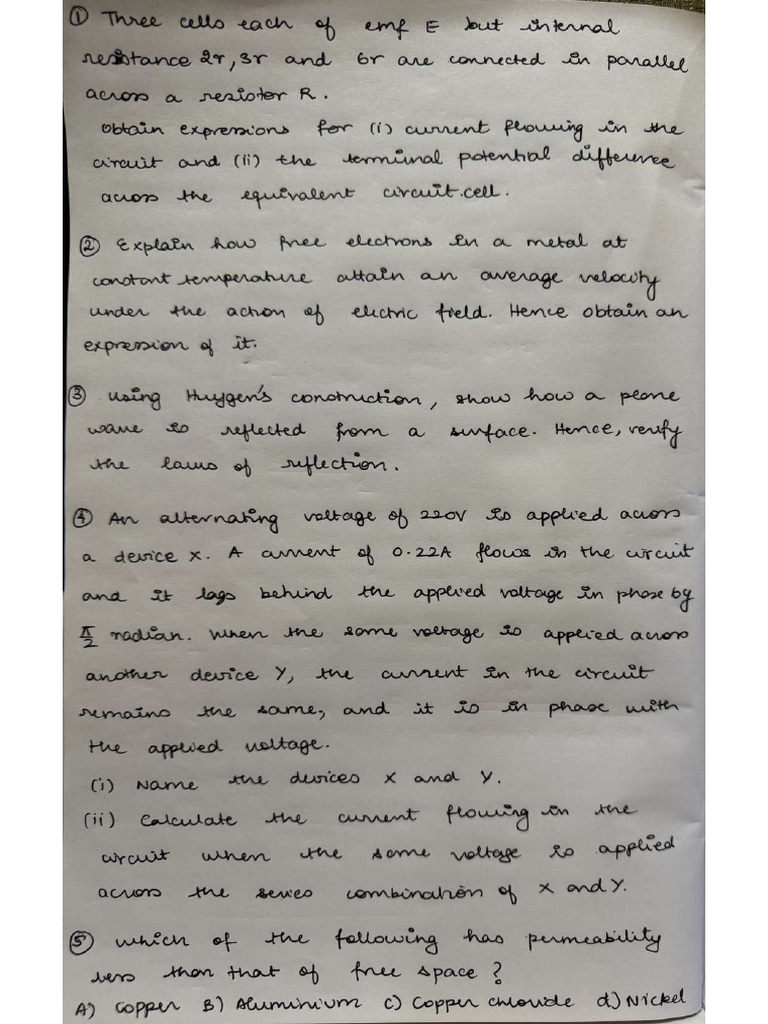 ① Three cells each of emf E but internal
resistance 2r, 3r and 6r are connected in parallel
across a resistor R.
Obtain expressions for (i) current flowing in the
circuit and (ii) the terminal potential difference
across the equivalent circuit cell.
② Explain how free electrons in a metal at
constant temperature attain an average velocity
under the action of electric field. Hence obtain an
expression of it.
③ Using Huygen's construction, show how a plane
wave is reflected from a surface. Hence, verify
the laws of reflection.
④ An alternating voltage of 220V is applied across
a device X. A current of 0.22A flows in the circuit
and it lags behind the applied voltage in phase by
π/2 radian. When the same voltage is applied across
another device Y, the current in the circuit
remains the same, and it is in phase with
the applied voltage.
(i) Name the devices X and Y.
(ii) Calculate the current flowing in the
circuit when the same voltage is applied
across the series combination of X and Y.
⑤ Which of the following has permeability
less than that of free space?
A) Copper B) Aluminium C) Copper chloride d) Nickel